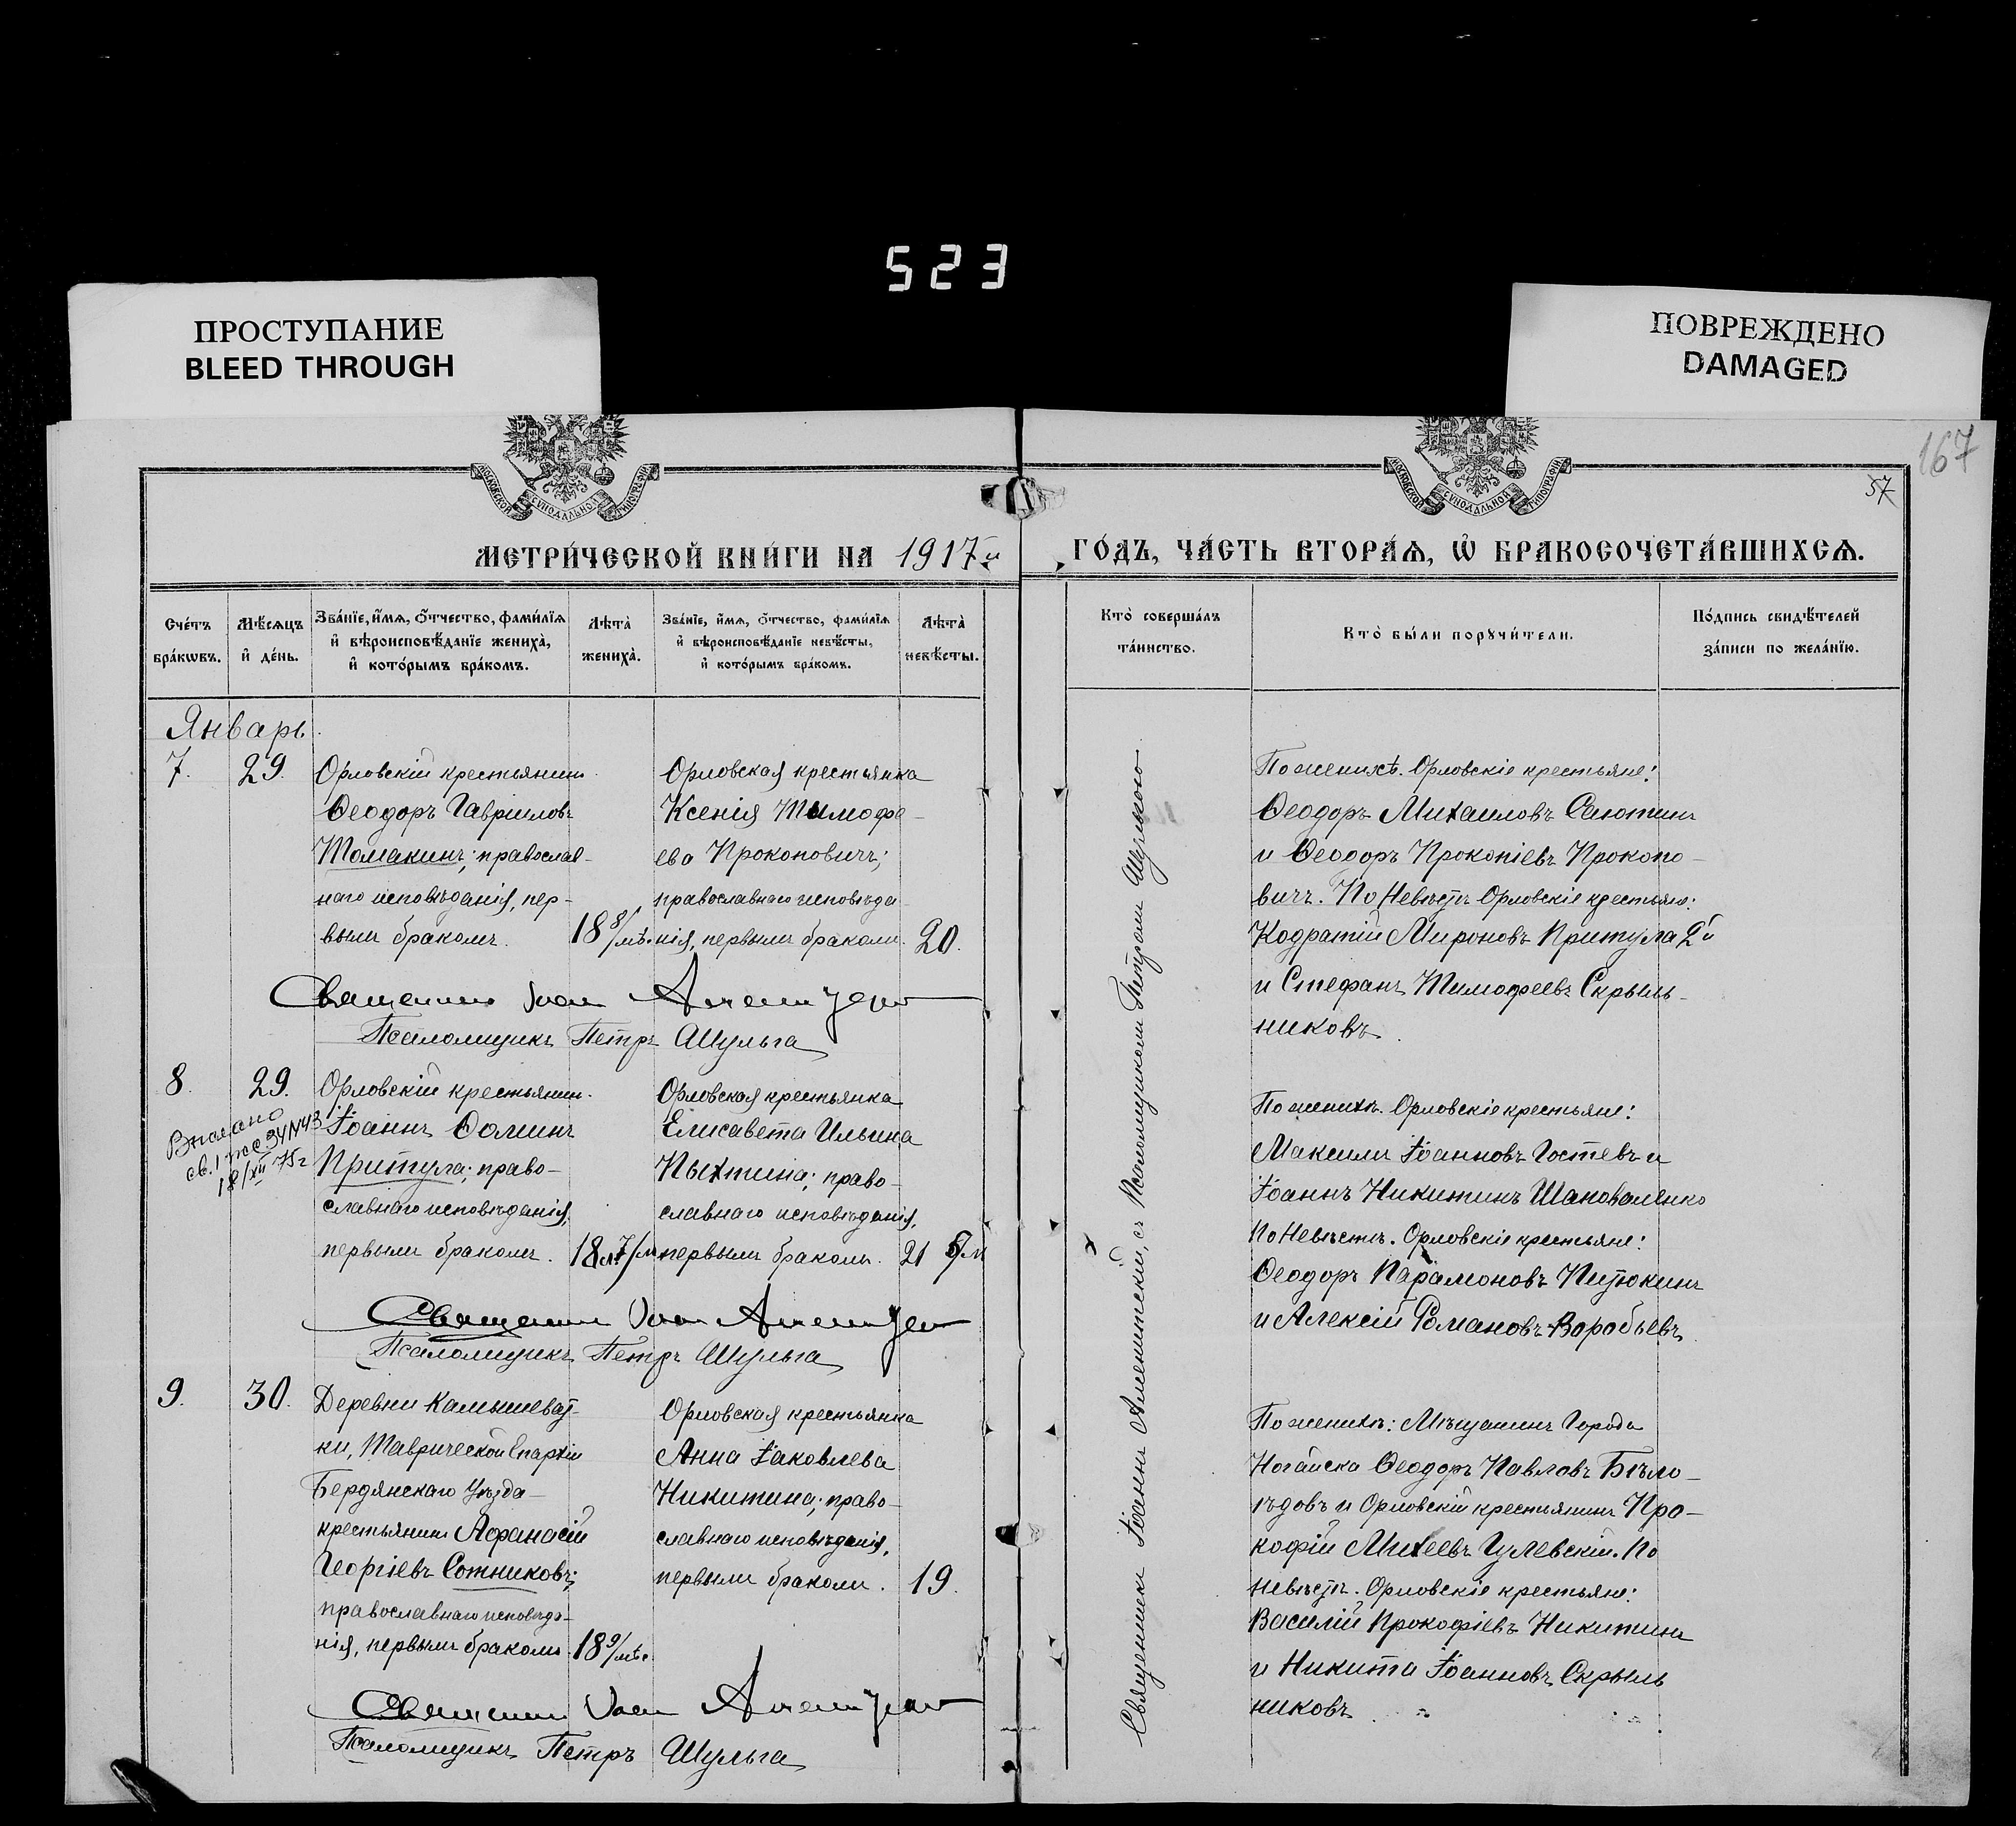 523
ПРОСТУПАНИЕ
BLEED THROUGH
ПОВРЕЖДЕНО
DAMAGED
167
57
МОСКОВСКОЙ СѴНОДАЛЬНОЙ ТИПОГРАФІИ
МОСКОВСКОЙ СѴНОДАЛЬНОЙ ТИПОГРАФІИ
МЕТРИ́ЧЕСКОЙ КНИ́ГИ НА 1917й
ГО́ДЪ, ЧА́СТЬ ВТОРА́Ѧ, Ѡ҆ БРАКОСОЧЕТА́ВШИХСѦ.
Сче́тъ
бра́кѡвъ.
Мѣ́сѧцъ
и҆ де́нь.
Зва́нїе, и҆́мѧ, о҆́тчество, фами́лїѧ
и҆ вѣроисповѣ́данїе жениха̀,
и҆ кото́рымъ бра́комъ.
Лѣта̀
жениха̀.
Зва́нїе, и҆́мѧ, о҆́тчество, фами́лїѧ
и҆ вѣроисповѣ́данїе невѣ́сты,
и҆ кото́рымъ бра́комъ.
Лѣта̀
невѣ́сты.
Кто̀ соверша́лъ
та́инство.
Кто̀ бы́ли порꙋчи́тели.
По́дпись свидѣ́телей
за́писи по жела́нїю.
Январь.
7.
29.
Орловскій крестьянинъ
Ѳеодоръ Гавріиловъ
Томакинъ; православ-
наго исповѣданія, пер-
вымъ бракомъ.
18 8/мѣ.
Орловская крестьянка
Ксенія Тимофе-
ева Прокоповичъ;
православнаго исповѣда-
нія, первымъ бракомъ.
20.
Священникъ Іоан
Псаломщикъ Петръ Шульга
По женихѣ. Орловскіе крестьяне:
Ѳеодоръ Михаиловъ Сапотинъ
и Ѳеодоръ Прокопіевъ Прокопо-
вичъ. По Невѣстѣ Орловскіе крестьяне:
Кодратій Мироновъ Притула 2й
и Стефанъ Тимофеевъ Скрыль-
никовъ.
8.
29.
св. 1
18/XII 75г
Орловскій крестьянинъ.
Іоаннъ Ѳоминъ
Притула; право-
славнаго исповѣданія,
первымъ бракомъ.
18 л. 7/м
Орловская крестьянка
Елисавета Ильина
Пыхтина; право-
славнаго исповѣданія,
первымъ бракомъ.
21 5/м
Священникъ Іоан
Псаломщикъ Петръ Шульга
По женихѣ. Орловскіе крестьяне:
Максимъ Іоанновъ Гостевъ и
Іоаннъ Никитинъ Шаповаленко
По Невѣстѣ. Орловскіе крестьяне:
Ѳеодоръ Парамоновъ Питюкинъ
и Алексій Романовъ Воробьевъ.
9.
30.
Деревни Камышеват-
ки, Таврической Епархіи
Бердянскаго Уѣзда-
крестьянинъ Афанасій
Георгіевъ Сотниковъ;
православнаго исповѣда-
нія, первымъ бракомъ.
18 9/мѣс.
Орловская крестьянка
Анна Іаковлева
Никитина; право-
славнаго исповѣданія,
первымъ бракомъ.
19.
Священникъ Іоан
Псаломщикъ Петръ Шульга
По женихѣ: Мѣщанинъ Города
Ногайска Ѳеодоръ Павловъ Бѣло-
ѣдовъ и Орловскій крестьянинъ Про-
кофій Михеевъ Гулевскій. По
невѣстѣ. Орловскіе крестьяне:
Василій Прокофіевъ Никитинъ
и Никита Іоанновъ Скрыль
никовъ.
Священникъ Іоаннъ съ Псаломщикомъ Петромъ Шульгою